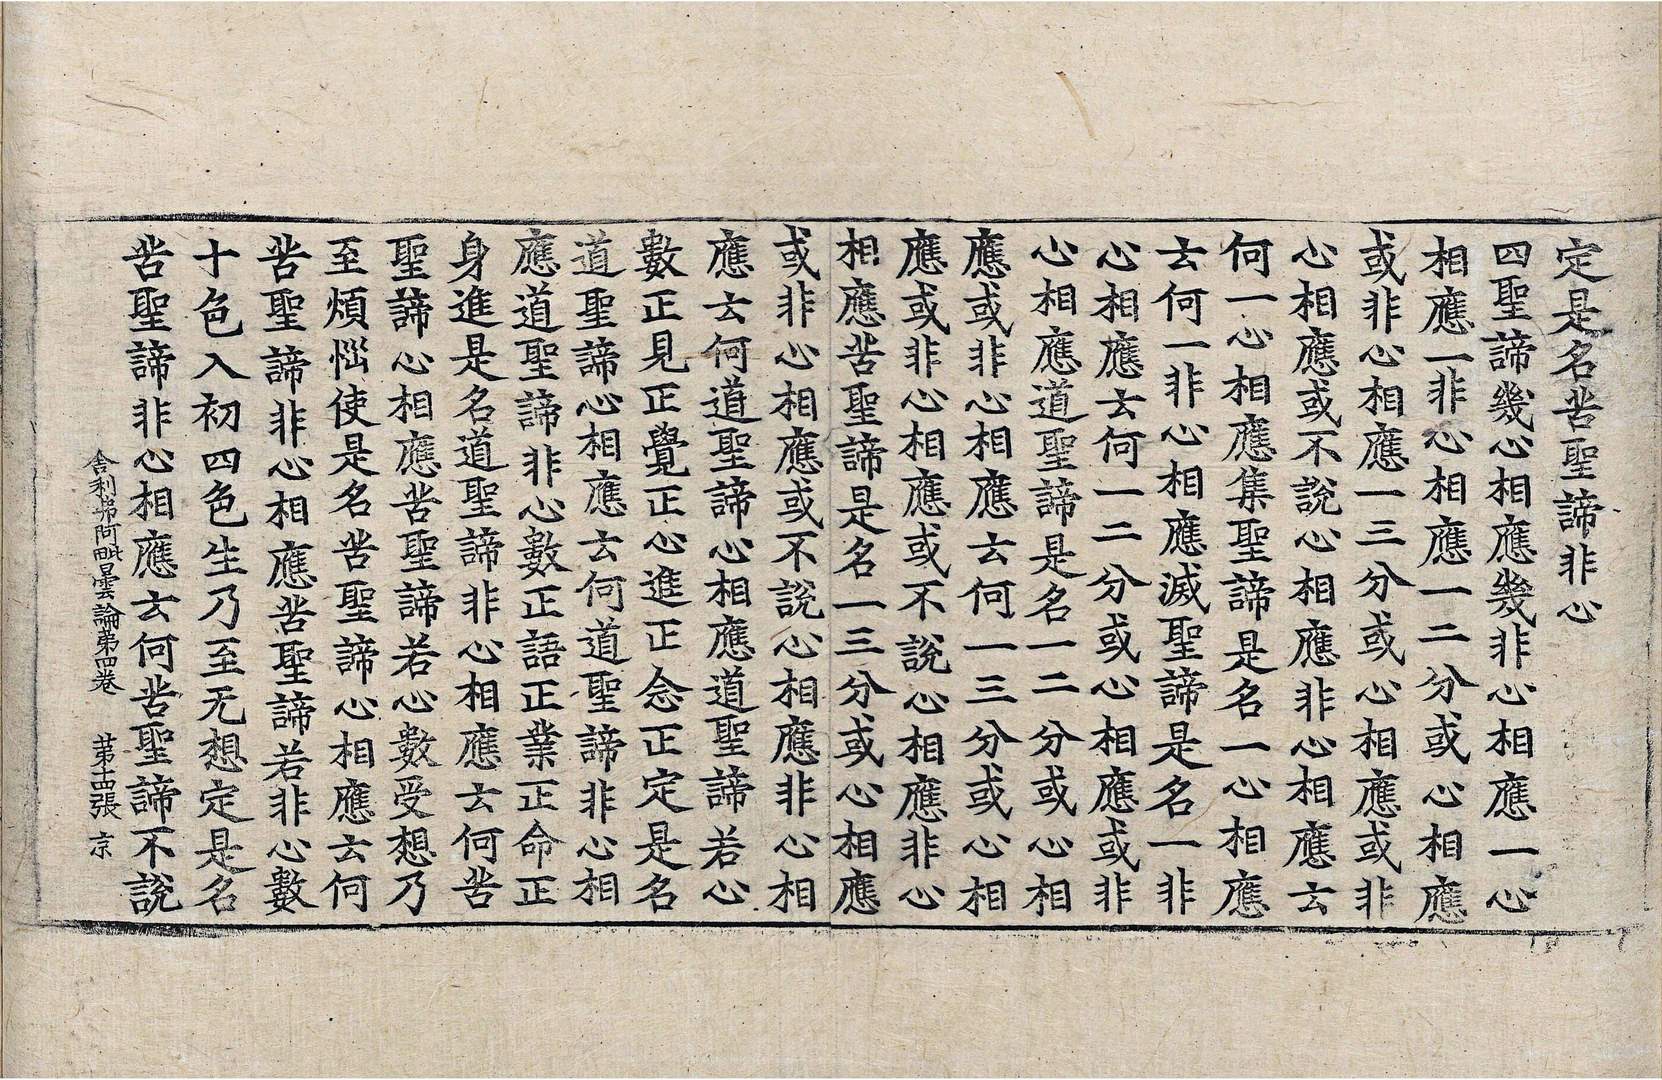 定是名苦聖諦非心
四聖諦幾心相應幾非心相應一心
相應一非心相應一二分或心相應
或非心相應一三分或心相應或非
心相應或不說心相應非心相應云
何一心相應集聖諦是名一心相應
云何一非心相應滅聖諦是名一非
心相應云何一二分或心相應或非
心相應道聖諦是名一二分或心相
應或非心相應云何一三分或心相
應或非心相應或不說心相應非心
相應苦聖諦是名一三分或心相應
或非心相應或不說心相應非心相
應云何道聖諦心相應道聖諦若心
數正見正覺正心進正念正定是名
道聖諦心相應云何道聖諦非心相
應道聖諦非心數正語正業正命正
身進是名道聖諦非心相應云何苦
聖諦心相應苦聖諦若心數受想乃
至煩惱使是名苦聖諦心相應云何
苦聖諦非心相應苦聖諦若非心數
十色入初四色生乃至无想定是名
苦聖諦非心相應云何苦聖諦不說
舍利弗阿毗曇論第四卷 第十四張 京